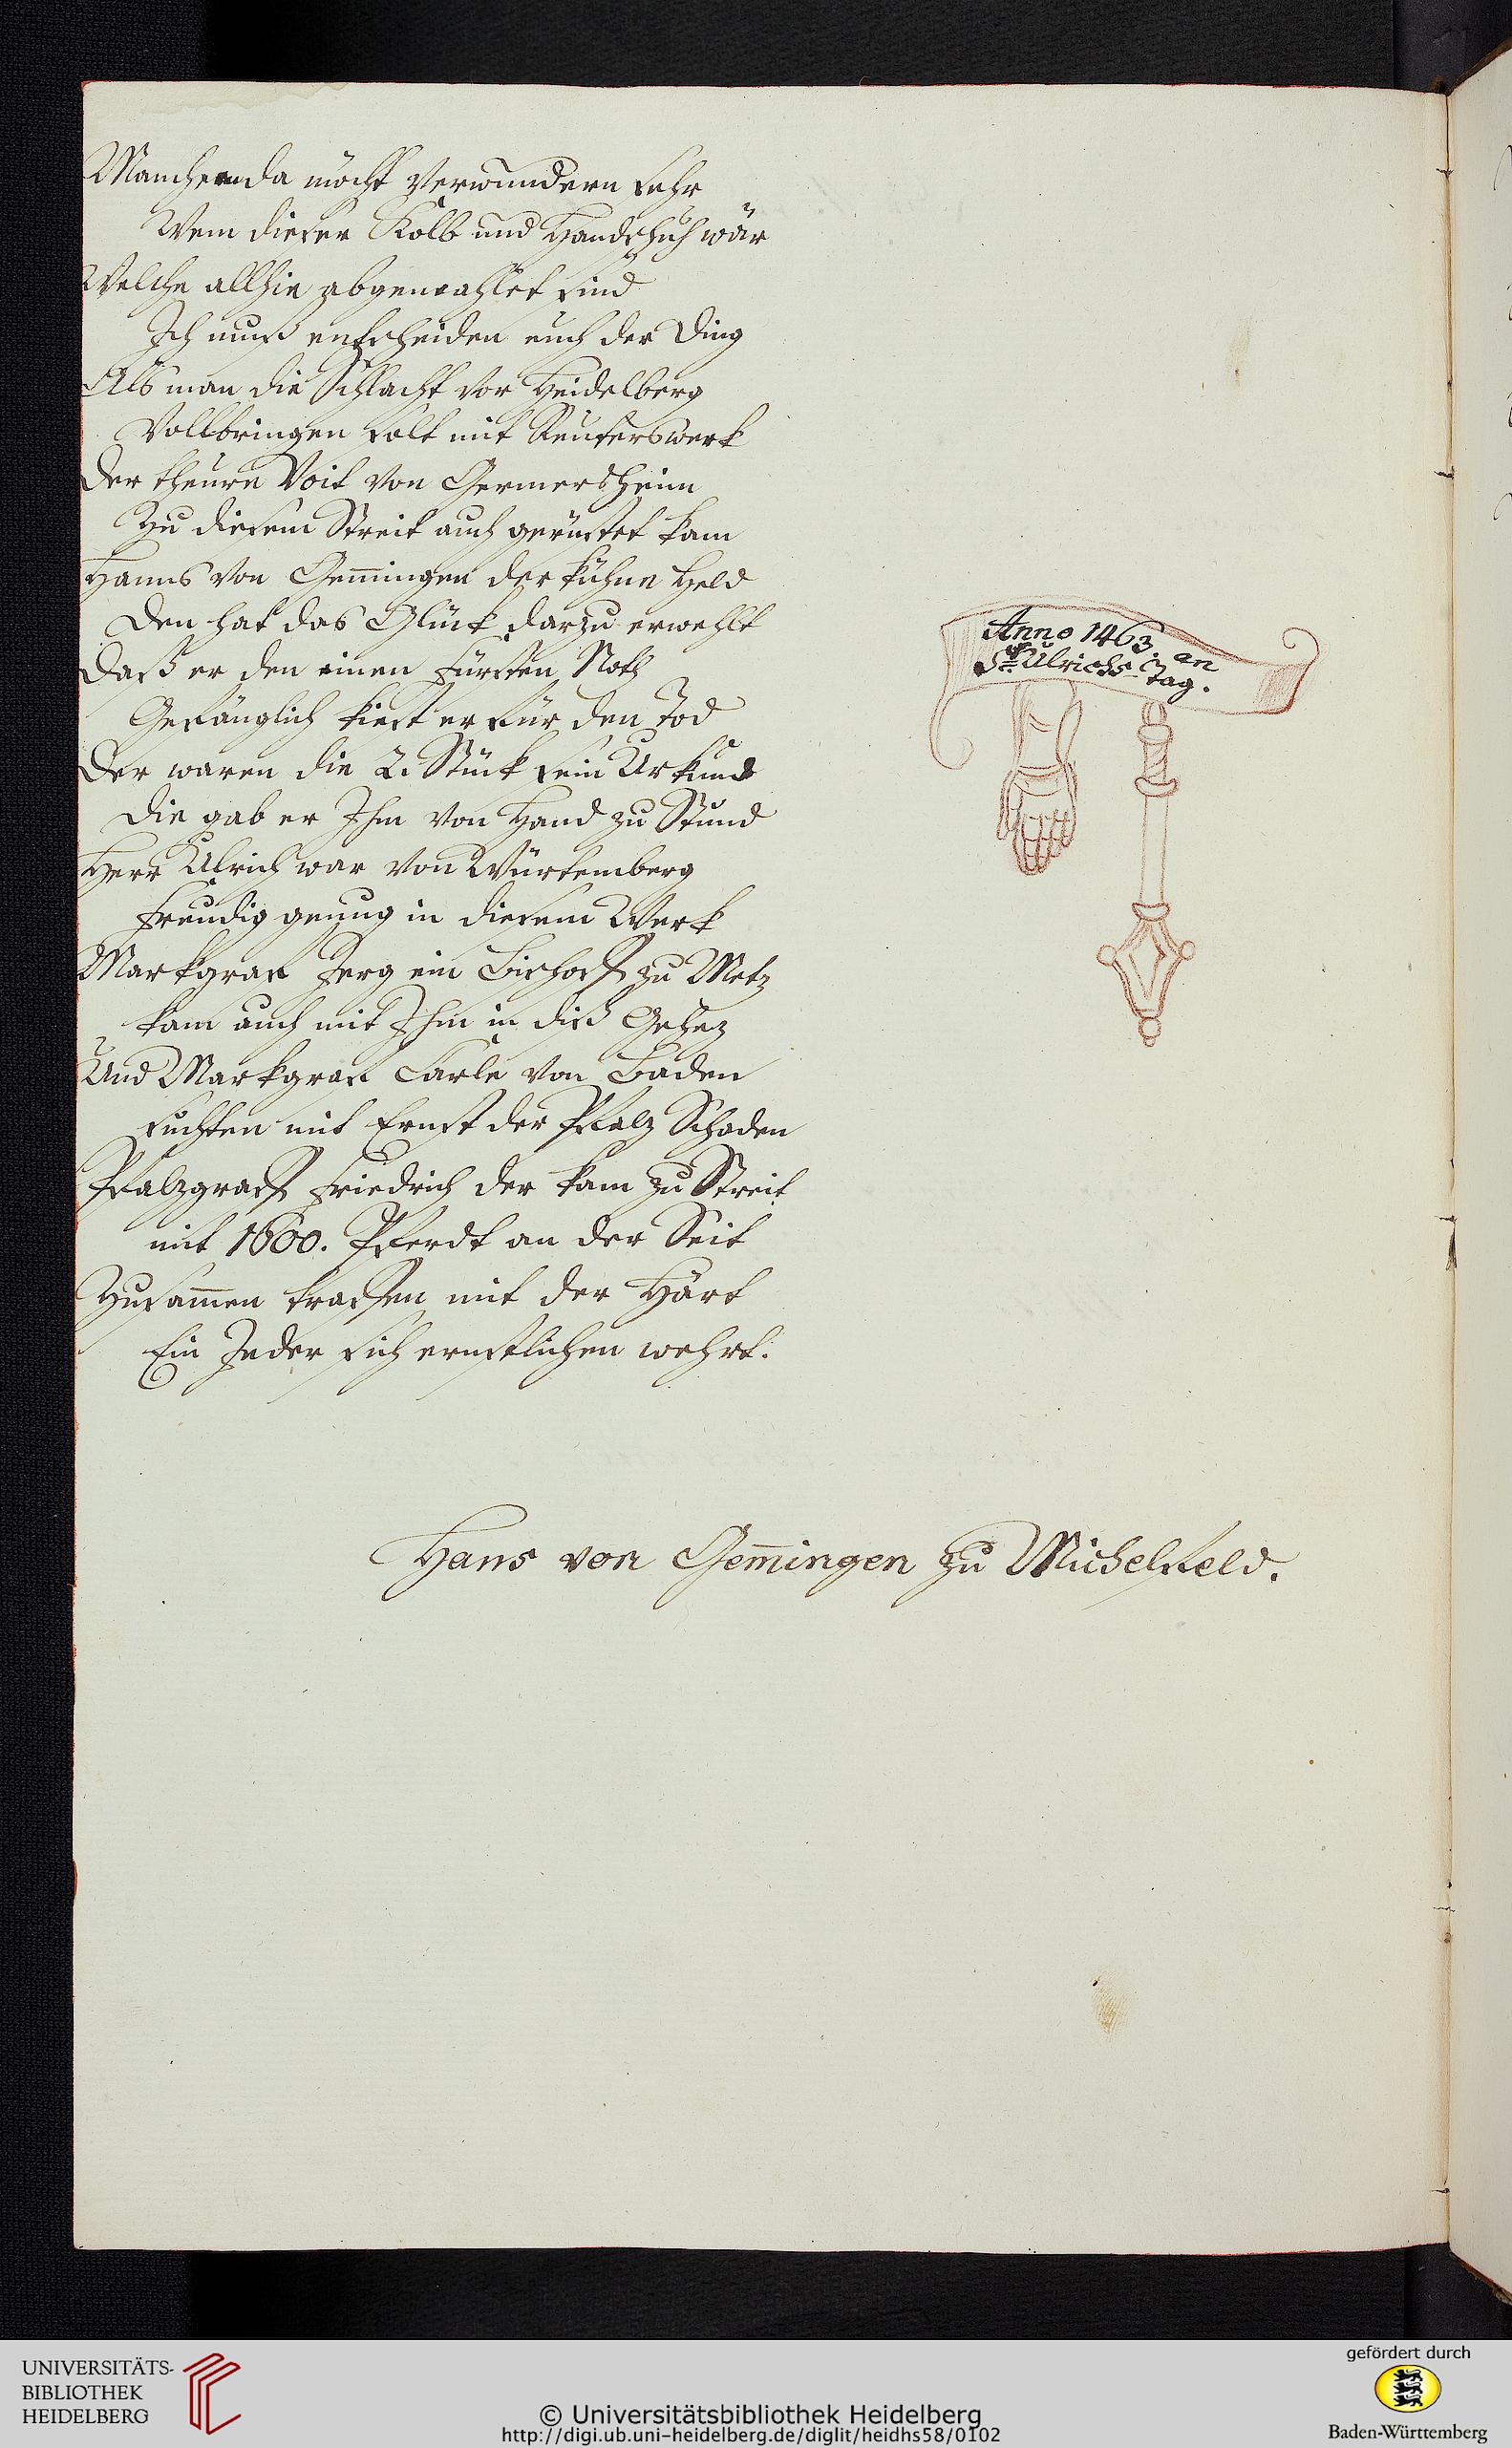 Manchen da möcht verwundern sehr
Wem dieser Kolb und Handschuh wär
Welche allhie abgemahlet sind
Ich muß entscheiden euch der Ding
Als man die Schlacht vor Heidelberg
Vollbringen solt mit Reuterswerk
Der theure Voit von Germersheim
Zu diesem Streit auch gerüstet kam
Hanns von Gem̄ingen der kühne Held
Den hat das Glück darzu erwehlt
Daß er den einen Fürsten Noth
Gefänglich frist er für den Tod
Der waren die 2. Stück sein Urkund
Die gab er Ihm von Hand zu Stund
Herr Ulrich war von Würtemberg
Freudig genug in diesem Werk
Markgraf Jerg ein Bischoff zu Metz
kam auch mit Ihm in diß Gehez
Und Markgraf Carle von Baden
suchten mit Ernst der Pfalz Schaden
Pfalzgraff Friedrich der kam zu Streit
mit 1600. Pferdt an der Seit
Zusam̄en traffen mit der Härt
Ein Jeder sich ernstlichen wehrt.
Anno 1463. an
St. Ulrichs-Tag.
Hans von Gem̄ingen zu Michelfeld.
UNIVERSITÄTS-
BIBLIOTHEK
HEIDELBERG
© Universitätsbibliothek Heidelberg
http://digi.ub.uni-heidelberg.de/diglit/heidhs58/0102
gefördert durch
Baden-Württemberg